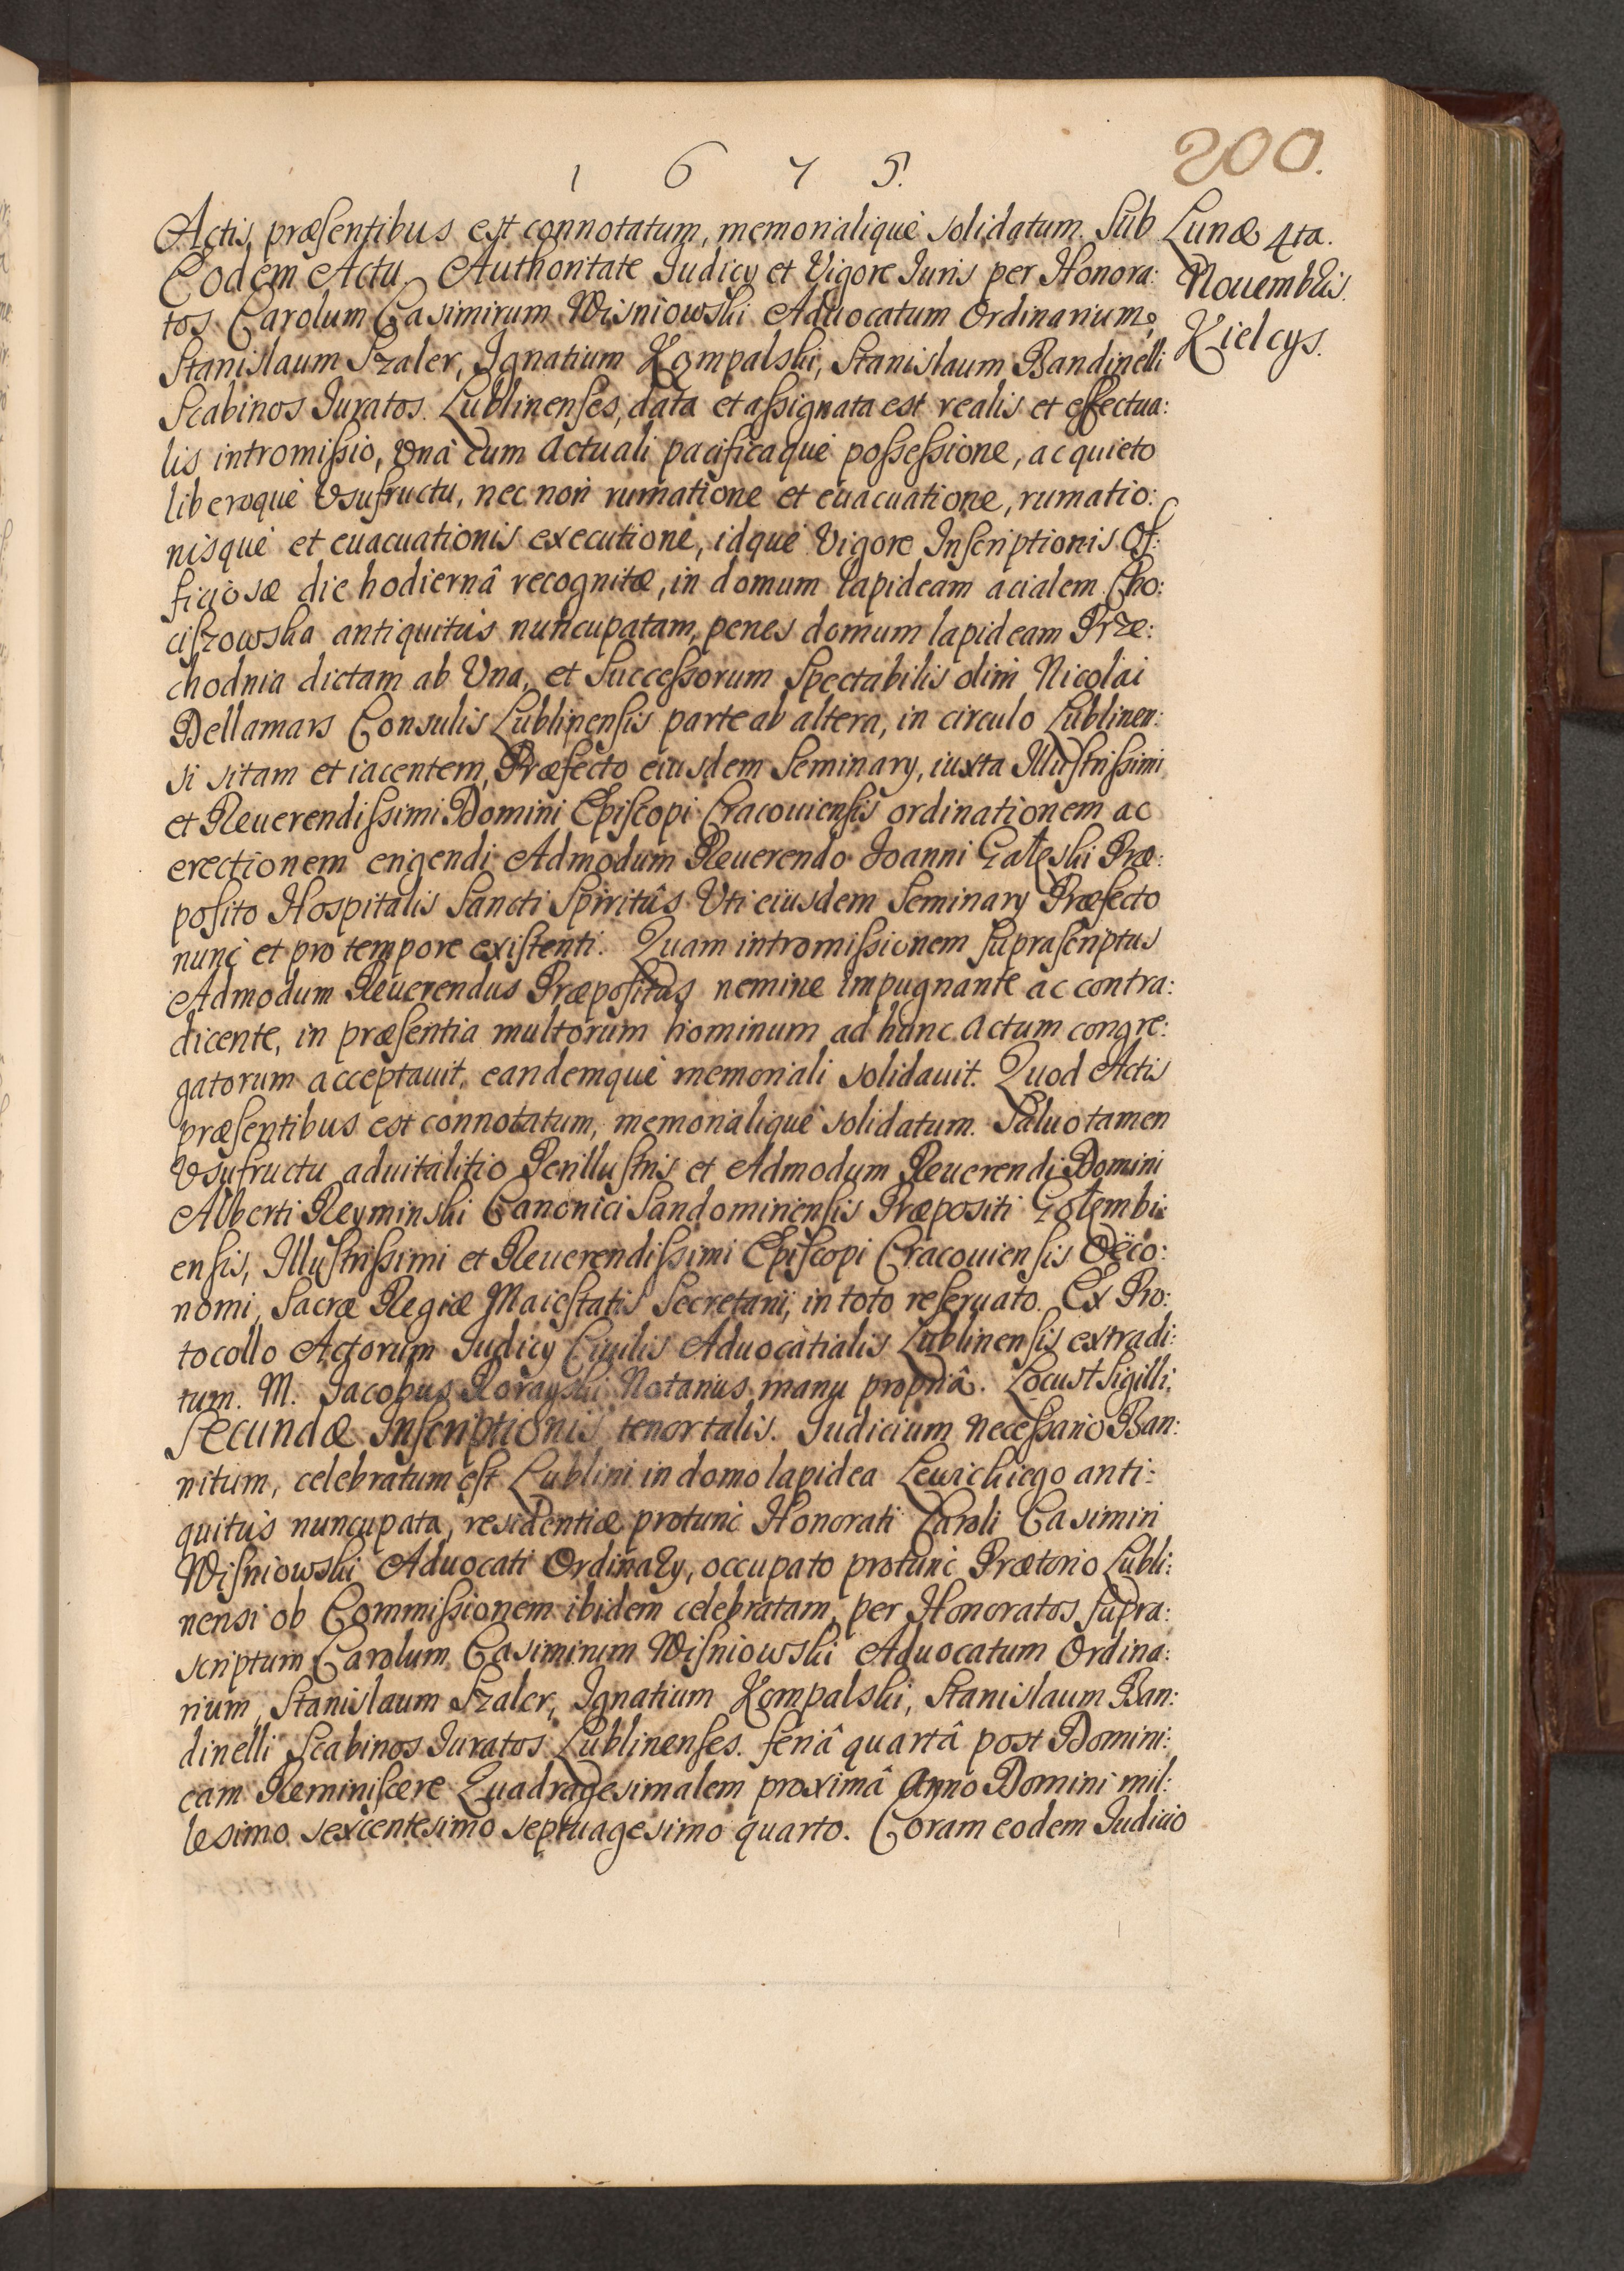 200.
1 6 7 5.
Lunæ 4ta.
Nouembris.
Kielcys.
Actis præsentibus est connotatum, memorialiquè solidatum. Sub
Eodem Actu. Authoritate Iudicy et Vigore Iuris per Honora:
tos Carolum Casimirum Wisniowski Aduocatum Ordinarium,
Stanislaum Szaler, Ignatium Kompalski, Stanislaum Bandinelli
Scabinos Iuratos Lublinenses, data et assignata est realis et effectua:
lis intromissio, Vnà cum actuali pacificaquè possessione, ac quieto
liberoquè Vsufructu, nec non rumatione et euacuatione, rumatio:
nisquè et euacuationis executione, idquè Vigore Inscriptionis Of:
ficiosæ die hodiernâ recognitæ, in domum lapideam acialem Cho:
ciszowska antiquitùs nuncupatam, penes domum lapideam Prze:
chodnia dictam ab Vna, et Successorum Spectabilis olim Nicolai
Dellamars Consulis Lublinensis parte ab altera, in circulo Lublinen:
si sitam et iacentem, Præfecto eiusdem Seminary, iuxta Illustrissimi
et Reuerendissimi Domini Episcopi Cracouiensis ordinationem ac
erectionem erigendi Admodum Reuerendo Ioanni Gałęski Præ:
posito Hospitalis Sancti Spiritûs Vti eiusdem Seminary Præfecto
nunc et pro tempore existenti. Quam intromissionem suprascriptus
Admodum Reuerendus Præpositus nemine impugnante ac contra:
dicente, in præsentia multorum hominum ad hunc actum congre:
gatorum acceptauit, eandemquè memoriali solidauit. Quod Actis
præsentibus est connotatum, memorialiquè solidatum. Saluo tamen
Vsufructu aduitalitio Perillustris et Admodum Reuerendi Domini
Alberti Reyminski Canonici Sandomiriensis Præpositi Gołembi:
ensis, Illustrissimi et Reuerendissimi Episcopi Cracouiensis Oeco:
nomi, Sacræ Regiæ Maiestatis Secretarii, in toto reseruato. Ex Pro:
tocollo Actorum Iudicy Ciuilis Aduocatialis Lublinensis extradi:
tum. M. Iacobus Rorayski Notarius manu propriâ. Locust Sigilli.
Secundæ Inscriptionis tenor talis. Iudicium necessario Ban:
nitum, celebratum est Lublini in domo lapidea Lewickiego anti:
quitùs nuncupata, residentiæ protunc Honorati Caroli Casimiri
Wisniowski Aduocati Ordinary, occupato protunc Prætorio Lubli:
nensi ob Commissionem ibidem celebratam, per Honoratos supra:
scriptum Carolum Casimirum Wisniowski Aduocatum Ordina:
rium, Stanislaum Szaler, Ignatium Kompalski, Stanislaum Ban:
dinelli Scabinos Iuratos Lublinenses. feriâ quartâ post Domini:
cam Reminiscere Quadragesimalem proximâ Anno Domini mil:
lesimo sexcentesimo septuagesimo quarto. Coram eodem Iudicio